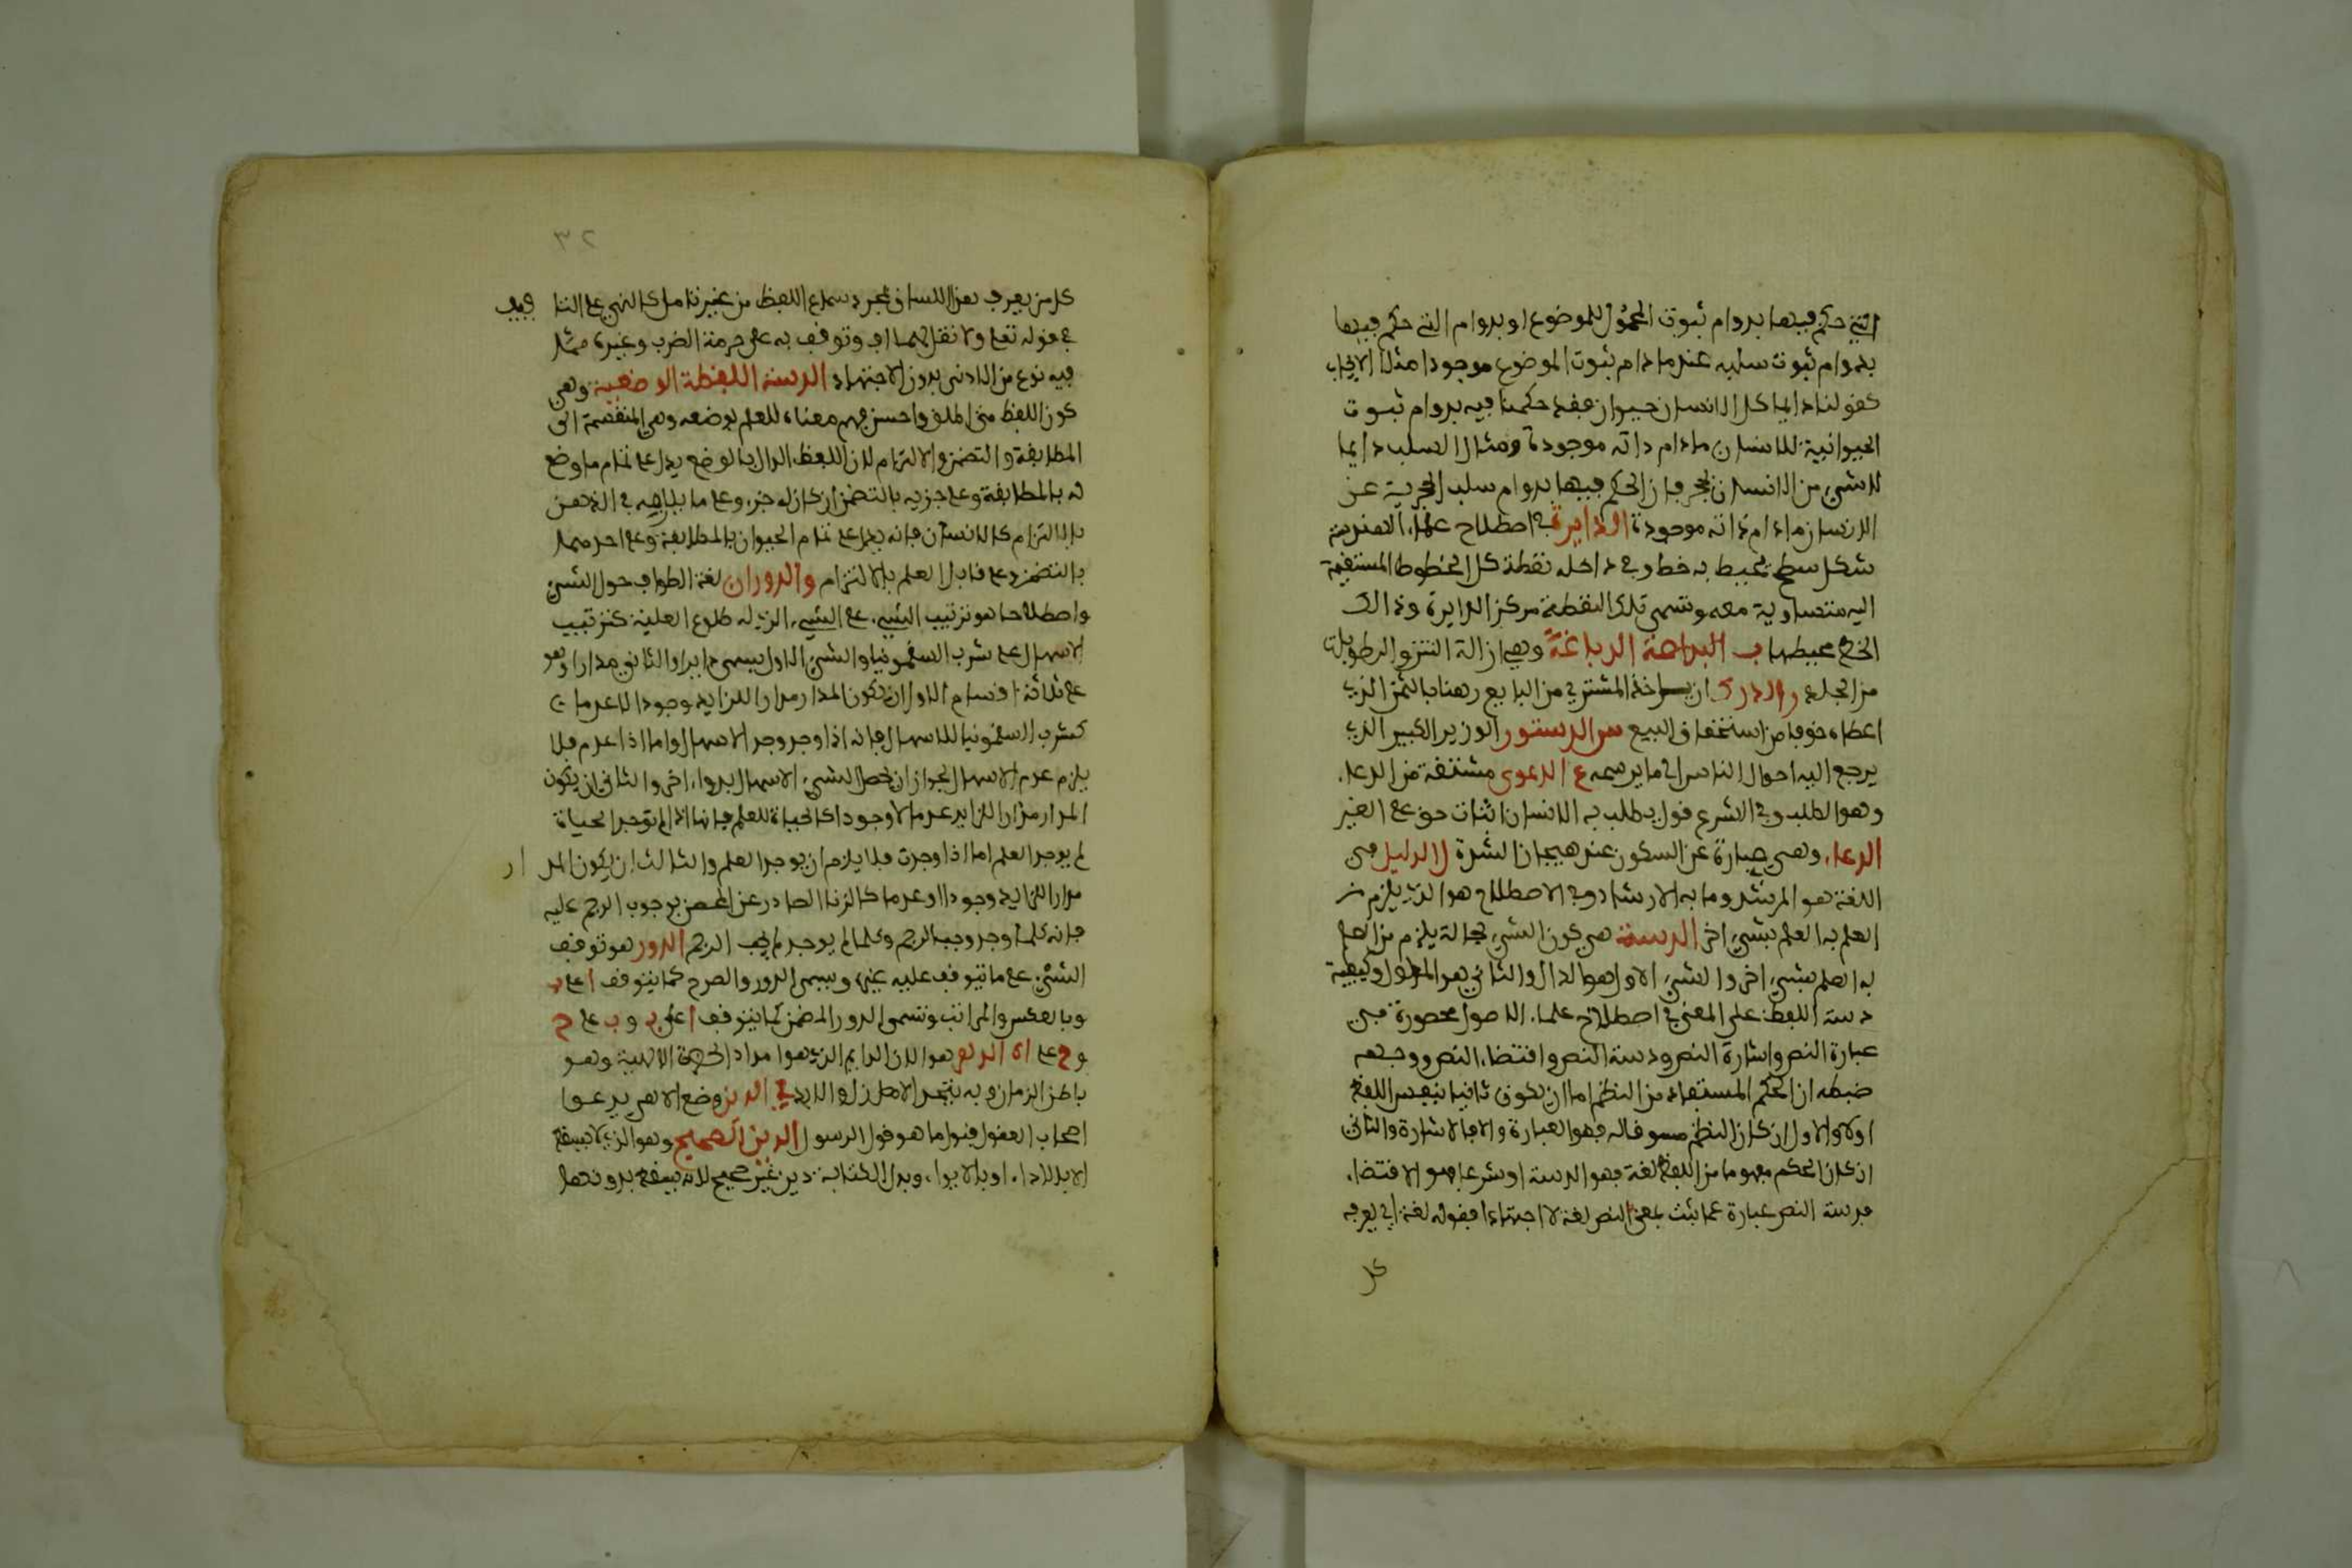 التي حكم فيها بدوام ثبوت المحمول للموضوع او بدوام التي حكم فيها
بدوام ثبوت سلبه عنه ما دام ثبوت الموضوع موجودا مثال الايجاب
كقولنا دايما كل الانسان حيوان فقد حكمنا فيه بدوام ثبوت
الحيوانية للانسان ما دام ذاته موجودة ومثال السلب دايما
لا شيء من الانسان بحجر فان الحكم فيها بدوام سلب الحجرية عن
الانسان ما دام ذاته موجودة الدايرة في اصطلاح علماء الهندسة
شكل سطح يحيط به خط وفي داخله نقطة كل الخطوط المستقيمة
اليه متساوية معه وتسمى تلك النقطة مركز الدايرة وذالك
الخط محيطها ب الدباغة وهي ازالة النتن والرطوبات
من الجلد ر الدرك ان ياخذ المشتري من البايع رهنا بالثمن الذي
اعطاه خوفا من استحقاق البيع س الدستور الوزير الكبير الذي
يرجع اليه احوال الناس الى ما يرسمه ع الدعوى مشتقة من الدعاء
وهو الطلب وفي الشرع قول يطلب به الانسان اثبات حق على الغير
الدعاء وهي عبارة عن السكون عند هيجان الشدة ل الدليل في
اللغة هو المرشد وما به الارشاد وفي الاصطلاح هو الذي يلزم من
العلم به العلم بشيء اخر الدسة هي كون الشيء بحالة يلزم من العلم
به العلم بشيء اخر والشيء الاول هو الدال والثاني هو المدلول وكيفية
دسة اللفظ على المعنى في اصطلاح علماء الاصول محصورة في
عبارة النص واشارة النص ودسة النص واقتضاء النص ووجه
ضبطه ان الحكم المستفاد من النظم اما ان يكون ثابتا بنفس اللفظ
اولا والاول ان كان النظم مسوقا له فهو العبارة والا فالاشارة والثاني
ان كان الحكم مفهوما من اللفظ لغة فهو الدسة او شرعا فهو الاقتضاء
فدسة النص عبارة عما ثبت بمعنى النص لغة لا اجتهادا فقوله لغة اي يعرفه
كل
٣٢
كل من يعرف هذا اللسان بمجرد سماع اللفظ من غير تامل كالنهي عن التا فيف
في قوله تعلى ولا تقل لهما اف وتوقف به على حرمة الضرب وغيره مما
فيه نوع من الاذى بدون الاجتهاد الدسة اللفظة الوضعية وهي
كون اللفظ متى اطلق واحسن فهم معناه للعلم بوضعه وهي المنقسمة الى
المطابقة والتضمن والالتزام لان اللفظ الدال بالوضع يدل على تمام ما وضع
له بالمطابقة وعلى جزيه بالتضمن ان كان له جزء وعلى ما يلازمه في الذهن
بالالتزام كالانسان فانه يدل على تمام الحيوان بالمطابقة وعلى احدهما
بالتضمن وعلى قابل العلم بالالتزام والدوران لغة الطواف حول الشيء
واصطلاحا هو ترتيب الشيء على الشيء الذي له طلوع العلية كترتيب
الاسهال على شرب السقمونيا والشيء الاول يسمى دايرا والثاني مدارا وهو
على ثلاثة اقسام الاول ان يكون المدار مدارا للدايد وجودا لا عدما
كشرب السقمونيا للاسهال فانه اذا وجد وجد الاسهال واما اذا عدم فلا
يلزم عدم الاسهال لجواز ان يحصل الشيء الاسهال بدواء اخر والثاني ان يكون
المدار مدارا للداير عدما لا وجودا كالحياة للعلم فانها اذا لم توجد الحياة
لم يوجد العلم اما اذا وجدت فلا يلزم ان يوجد العلم والثالث ان يكون المد ار
مدارا للدايد وجودا وعدما كالزنا الصادر عن المحصن لوجوب الرجم عليه
فانه كلما وجد وجب الرجم وكلما لم يوجد لم يجب الرجم الدور هو توقف
الشيء على ما يتوقف عليه غيره ويسمى الدور والمصرح كما يتوقف ا على ب
وبالعكس والمراتب وتسمى الدور المضمر كما يتوقف ا على ب و ب على ج
و ج على ا ه الدهر هو الان الدايم الذي هو امداد الحضرة الالهية وهو
باطن الزمان وبه يتحد الازل والابد ي الدين وضع الاهي يدعوا
اصحاب العقول قبول ما هو قول الرسول الدين الصحيح وهو الذي لا يسقط
الا بالاداء او بالابراء وبدل الكتابة دين غير صحيح لانه يسقط بدونهما